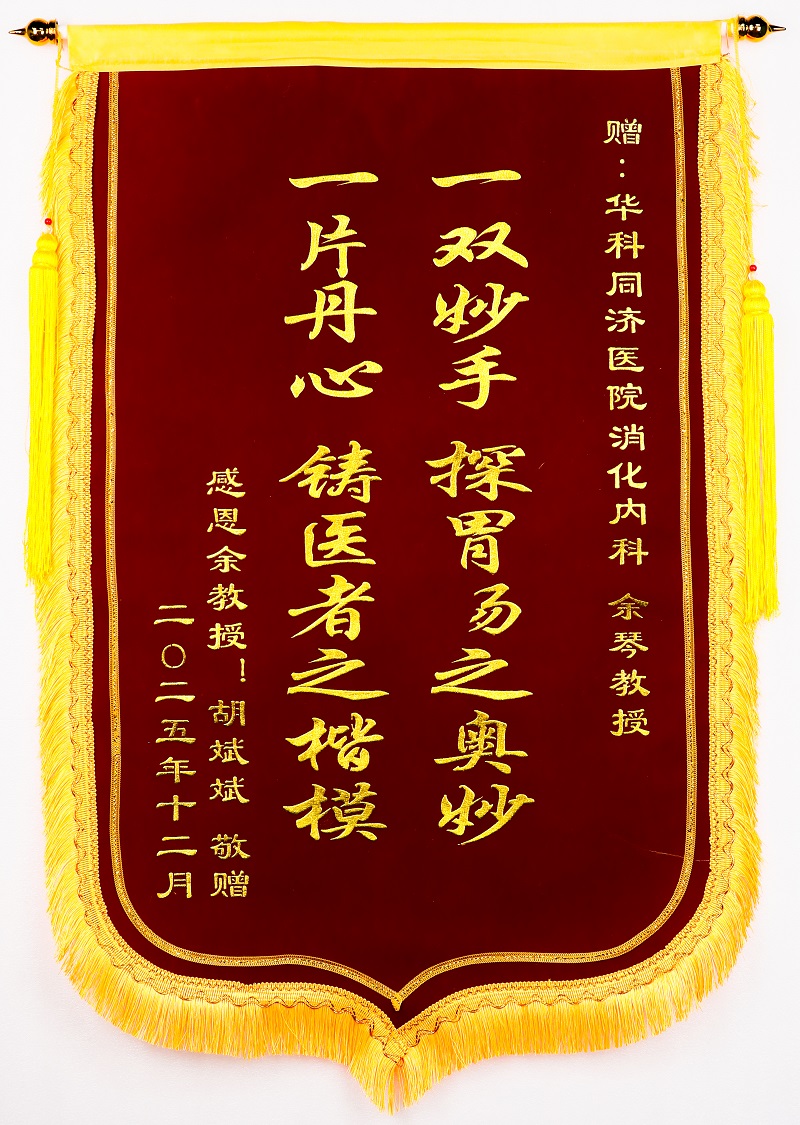 赠：华科同济医院消化内科 余琴教授
一双妙手 探胃肠之奥妙
一片丹心 铸医者之楷模
感恩余教授！胡斌斌 敬赠
二〇二五年十二月